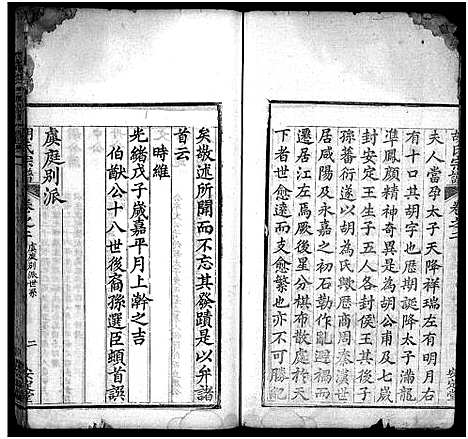 胡氏宗譜 卷之二
夫人當孕太子天降祥瑞左有明月右
有十口其胡字也歷期誕降太子滿龍
準鳳顏精神奇異是為胡公甫及七歲
封安定王生子五人各封侯王其後子
孫蕃衍遂以胡為氏焉歷商周秦漢世
居咸陽及永嘉之初石勒作亂隨南渡
遷居江左為厥後星分棋布散處於天
下者世愈遠而支愈繁也亦不可勝紀
安定堂
矣敬述所聞而不忘其發蹟是以弁諸
首云
時維
光緒戊子歲嘉平月上澣之吉
伯猷公十八世後裔孫選臣頓首謹
虞庭別派
胡氏宗譜 卷之二 虞庭別派世系 二 安定堂